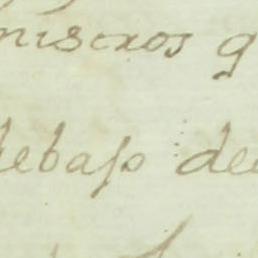 nistros q
debaso de